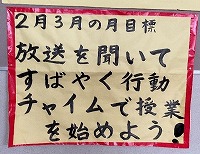 2月3月の月目標
放送を聞いて
すばやく行動
チャイムで授業
を始めよう!